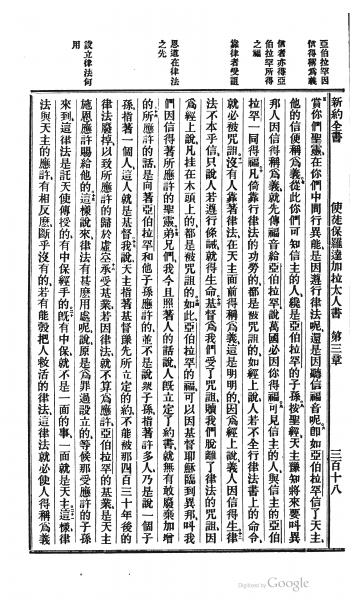 亞伯拉罕因
信得稱爲義
信者亦得亞
伯拉罕所得
之福
靠律者受詛
恩道在律法
之先
設立律法何
用
新約全書　使徒保羅達加拉太人書　第三章　三百十八
賞你們聖靈在你們中間行異能是因遵行律法呢、還是因聽信福音呢卽如亞伯拉罕信了天主、
他的信便稱爲義從此你們可知信主的人纔是亞伯拉罕的子孫按聖經天主豫知將來要叫異
邦人因信得稱爲義就先傳福音給亞伯拉罕說萬國必因你得福可見信主的人與信主的亞伯
拉罕一同得福凡倚靠行律法的功勞的都是被咒詛的如經上說人若不全行律法書上的命令、
就必被咒詛沒有人靠著律法在天主面前得稱爲義這是明明的因爲經上說義人因信得生律
法不本乎信只說人若遵行條誡就得生命基督爲我們受了咒詛贖我們脫離了律法的咒詛因
爲經上說凡挂在木頭上的都是被咒詛的如此亞伯拉罕的福可以因基督耶穌臨到異邦叫我
們因信得著所應許的聖靈弟兄們我今且照著人的話說人旣立定了約書就無有敢廢棄加增
的所應許的話是向著亞伯拉罕和他子孫應許的並不是說衆子孫指著許多人乃是說一個子
孫、指著一個人這人就是基督我說天主指著基督豫先所立定的約不能被那四百三十年後的
律法廢掉以致所應許的歸於虛空承受基業若因律法就不算爲應許亞伯拉罕的基業是天主
施恩應許賜給他的這樣說來律法有甚麼用處呢說原是爲罪過設立的等候那受應許的子孫
來到這律法是託天使傳授的有中保經手的旣有中保就不是一面的事一面就是天主這樣律
法與天主的應許有相反麼斷乎沒有的若有能彀把人救活的律法這律法就必使人得稱爲義
Digitized by Google